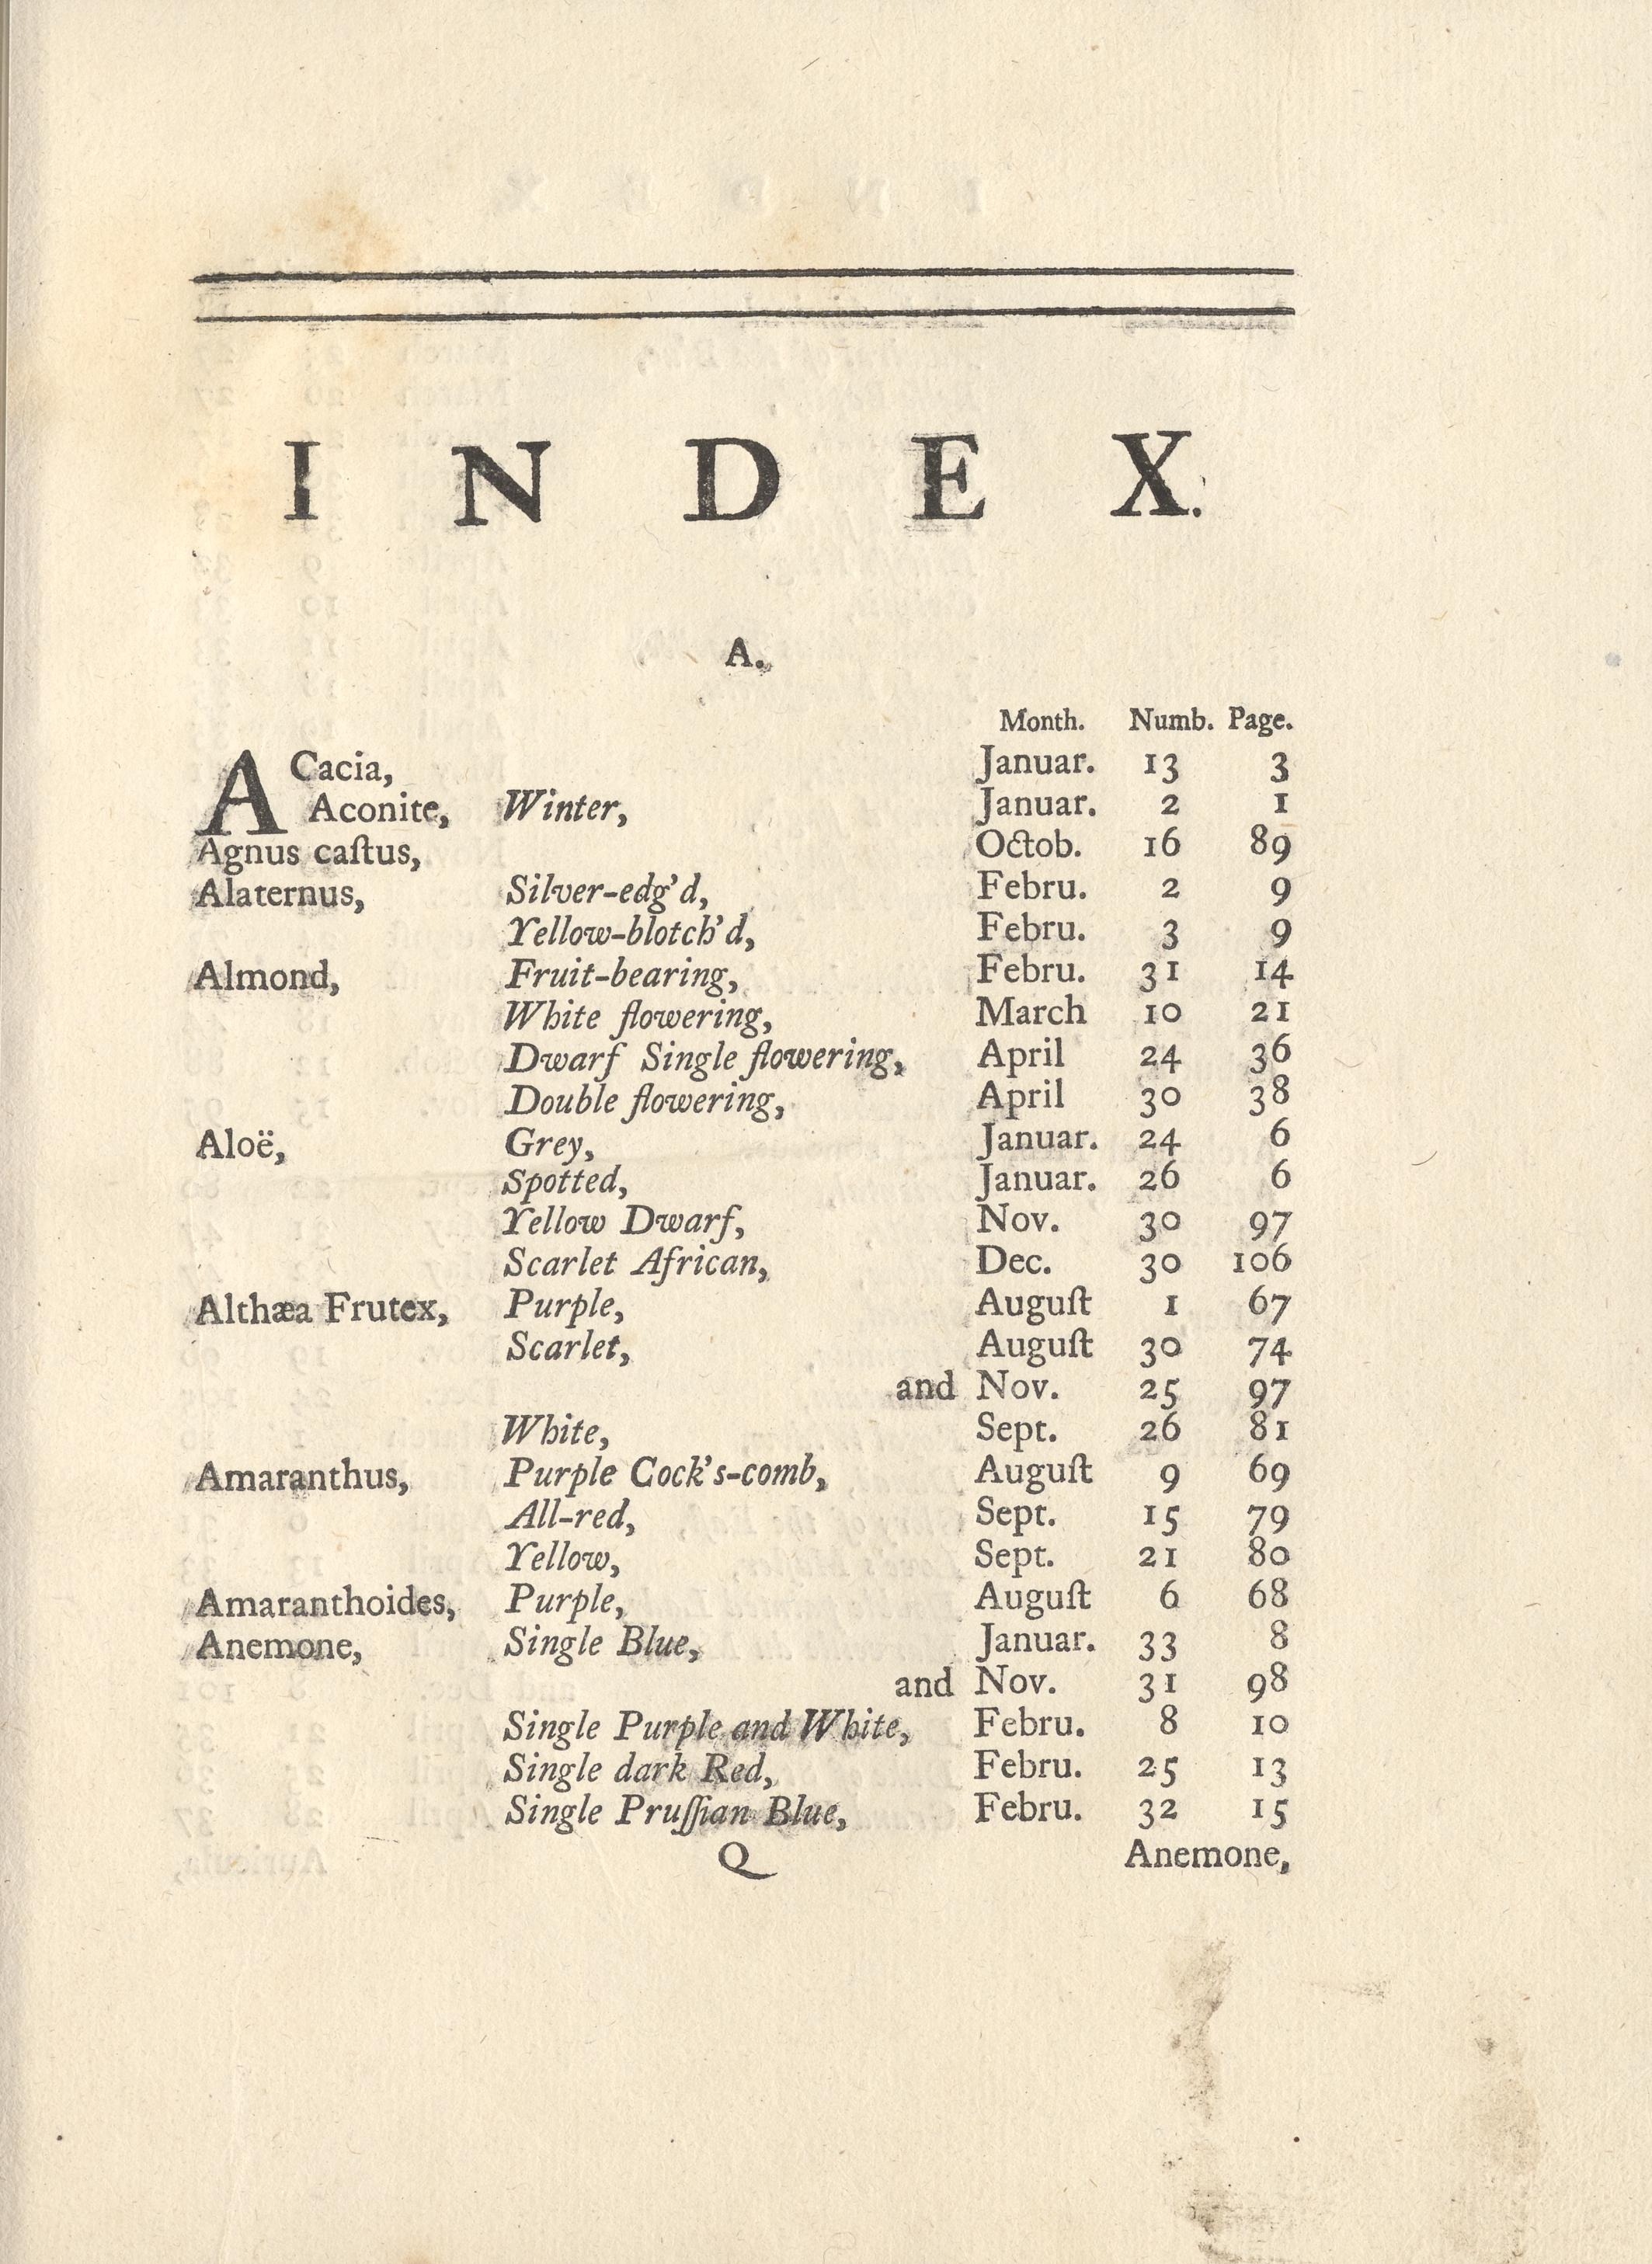 INDEX.
A.
Month. Numb. Page.
ACacia, Januar. 13 3
Aconite, Winter, Januar. 2 1
Agnus caſtus, Octob. 16 89
Alaternus, Silver-edg'd, Febru. 2 9
Yellow-blotch'd, Febru. 3 9
Almond, Fruit-bearing, Febru. 31 14
White flowering, March 10 21
Dwarf Single flowering, April 24 36
Double flowering, April 30 38
Aloë, Grey, Januar. 24 6
Spotted, Januar. 26 6
Yellow Dwarf, Nov. 30 97
Scarlet African, Dec. 30 106
Althæa Frutex, Purple, Auguſt 1 67
Scarlet, Auguſt 30 74
and Nov. 25 97
White, Sept. 26 81
Amaranthus, Purple Cock's-comb, Auguſt 9 69
All-red, Sept. 15 79
Yellow, Sept. 21 80
Amaranthoides, Purple, Auguſt 6 68
Anemone, Single Blue, Januar. 33 8
and Nov. 31 98
Single Purple and White, Febru. 8 10
Single dark Red, Febru. 25 13
Single Pruſſian Blue, Febru. 32 15
Q Anemone,